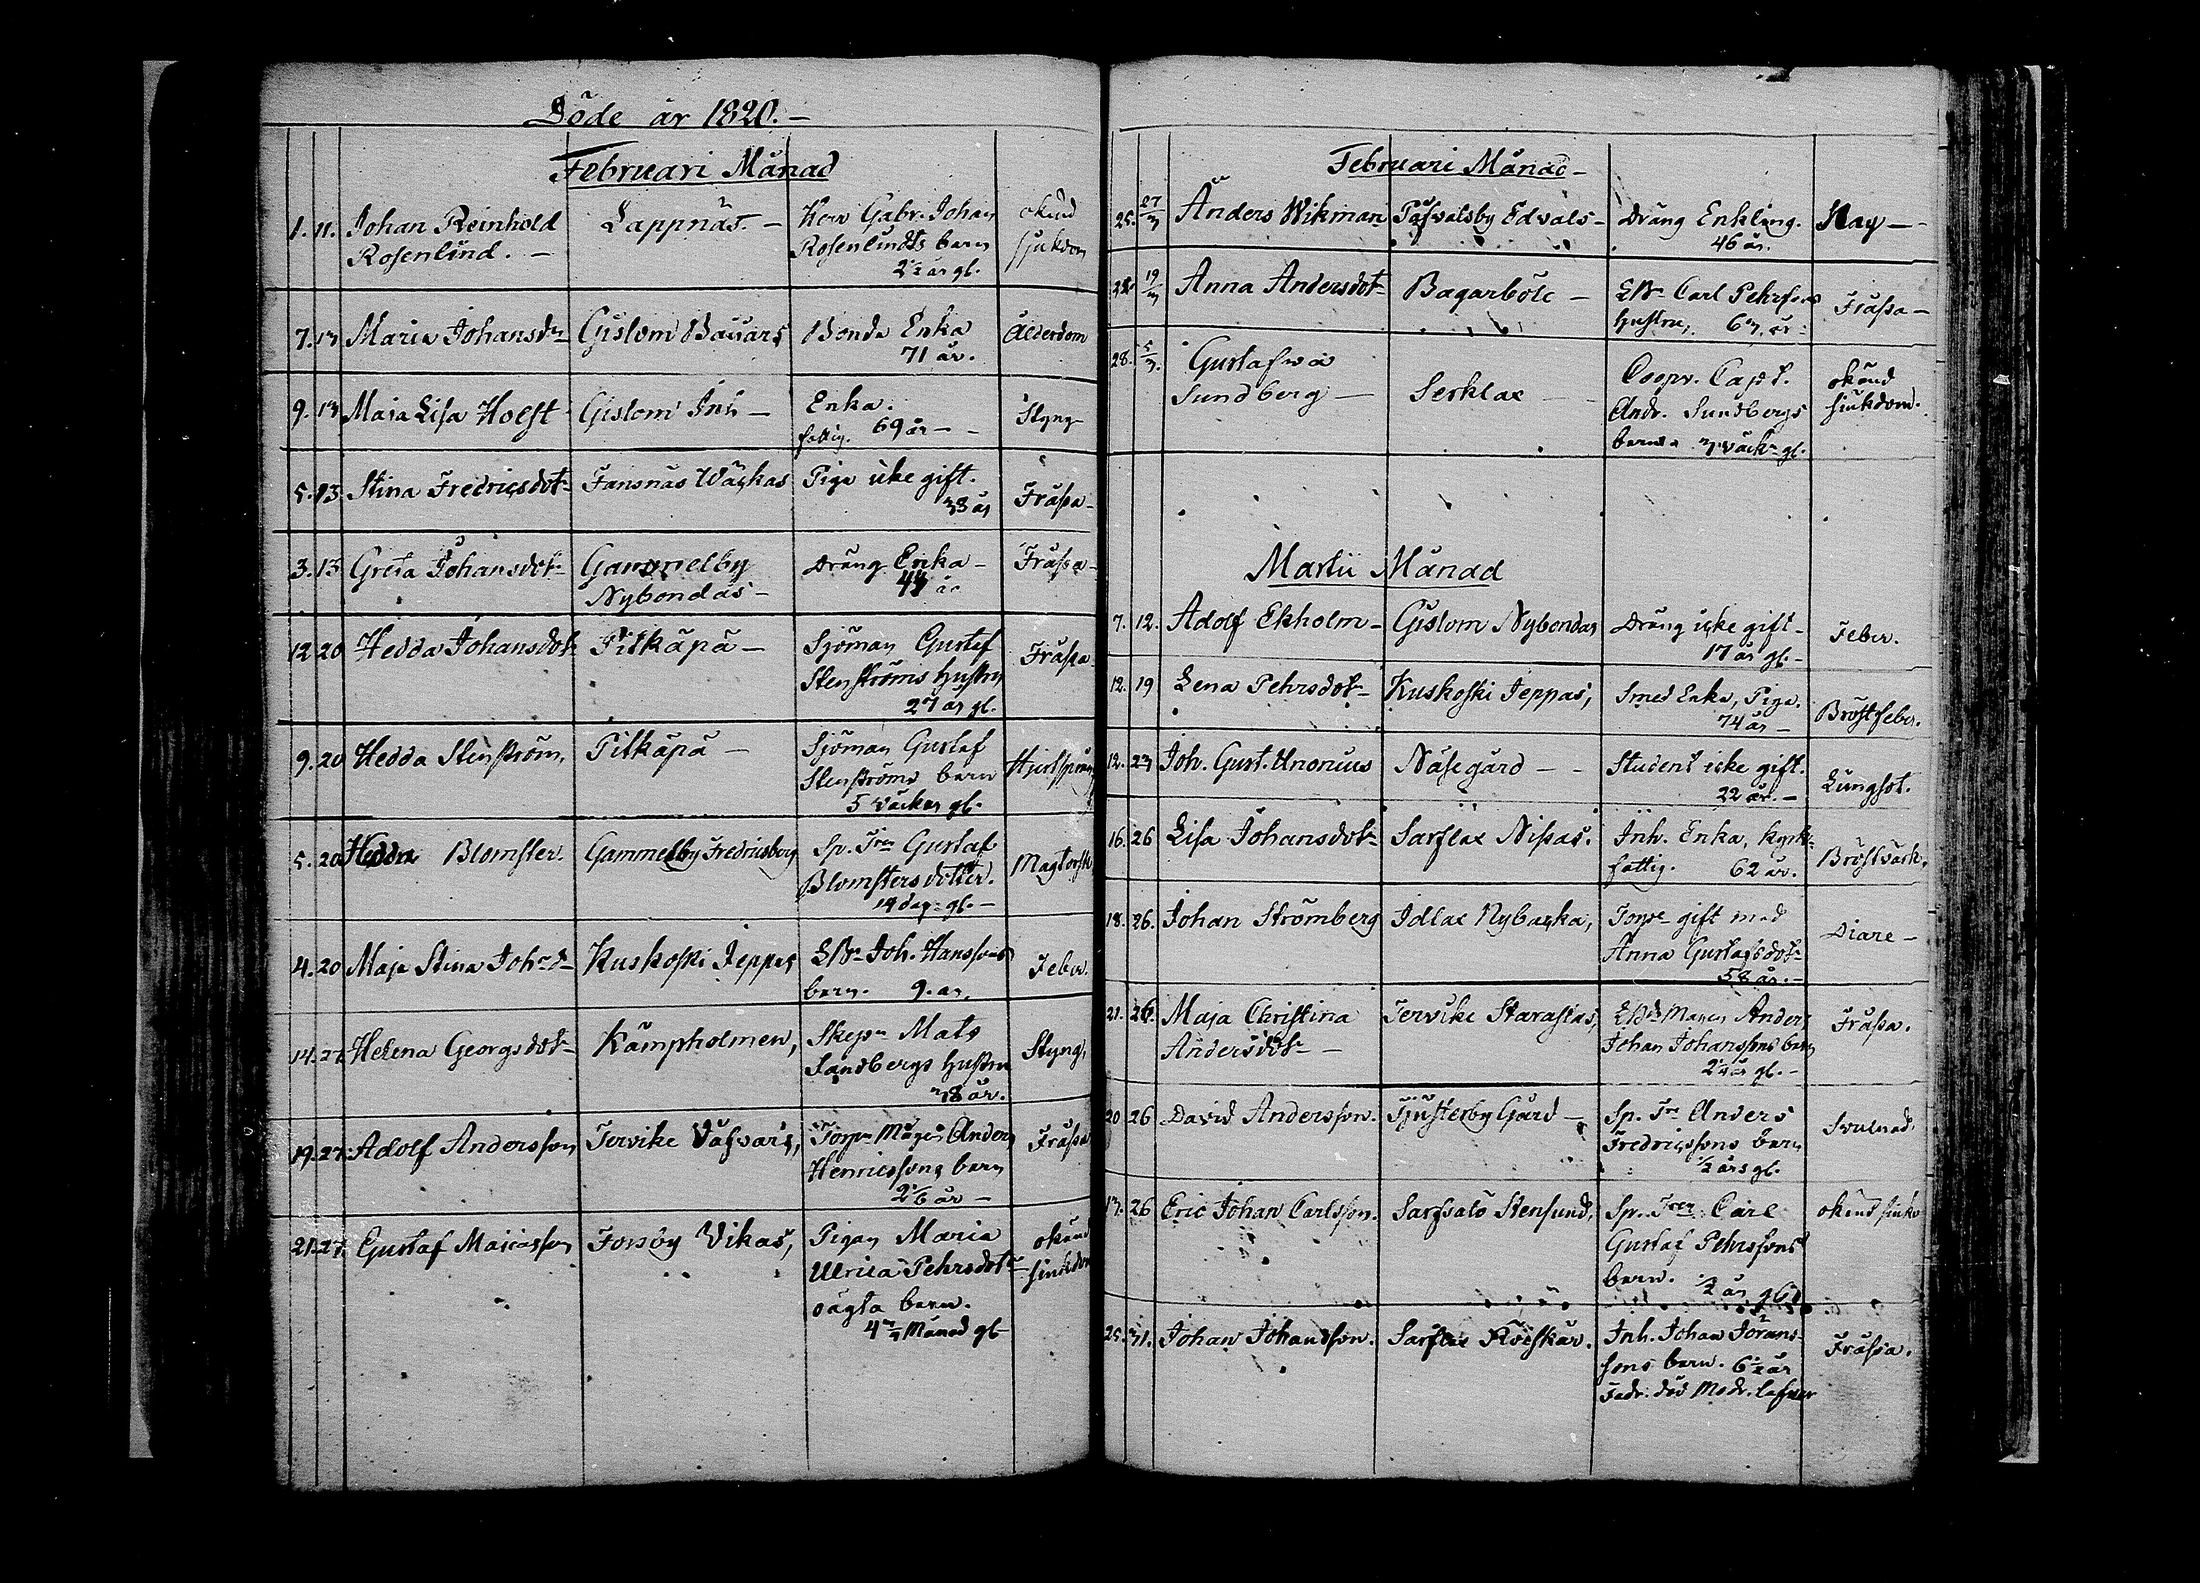 Döde år 1820.-
Februari Månad
1. 11. Johan Reinhold Lappnäs.- Herr Gabr. Johan okänd
Rosenlund.- Rosenlunds barn sjukdom
2½ år gl.
7. 13 Maria Johansdr Gislom Baccars Bonde Enka Ålderdom
71 år.
9. 13 Maja Lisa Holst Gislom Inh- Enka. Styng
fattig. 69 år-
5. 13 Stina Fredricsdotr Fansnäs Wäckas Piga icke gift. Fråssa-
33 år
3. 13 Greta Johansdotr Gammelby Dräng Enka- Fråssa-
Nybondas- 44 år
12 20 Hedda Johansdotr Pitkäpä- Sjöman Gustaf Fråssa-
Stenströms hustru
27 år gl.
9. 20 Hedda Stenström, Pitkäpä- Sjöman Gustaf Hjertsprång
Stenströms barn
5 väckor gl.
5. 20 Hedda Blomster. Gammelby Fredricsberg Sp. Trer Gustaf Magtorsk
Blomsters dotter.
14 dag: gl.-
4. 20 Maja Stina Joh:d- Kuskoski Jeppas LBr Joh. Hanssons Feber.
barn. 9. år.
14. 27. Helena Georgsdotr Kämpholmen, Skepr Mats Styng,
Sandbergs hustru
38 år.
19. 27. Adolf Andersson Tervike Våfvars, Torpr Mågen Anders Fråssa
Henricssons barn
2⅙ år-
21. 27. Gustaf Majasson Forsby Vikas, Pigan Maria okänd
Ulrica Pehrsdotr sjukdom
oägta barn.
4¾ Månad gl-
Februari Månad-
25. 27/3 Anders Wikman Påfvalsby Edvals- Dräng Enkling. Slag-
46 år.
28 19/3 Anna Andersdotr Bagarböle- LBr Carl Pehrssons Fråssa-
hustru, 63. år.
28. 5/3. Gustafwa Serklax Coopv. Capt. okänd
Sundberg- Andr. Sundbergs sjukdom.
barn 3 väck- gl.
Martii Månad
7. 12. Adolf Ekholm- Gislom Nybondas Dräng icke gift- Feber.
17 år gl.-
12. 19 Lena Pehrsdotr- Kuskoski Jeppas, Smed Enka, Piga. Bröstfeber.
74 år-
12. 23 Joh. Gust. Unonius Näsegård-- Student icke gift. Lungsot.
22 år.-
16. 26 Lisa Johansdotr Sarflax Nissas. Inh. Enka, kyrk- Bröstvärk.
fattig. 62 år.
18. 26. Johan Strömberg Idlax Nybacka, Torpr gift med Diare-
Anna Gustafsdotr
58 år.-
21. 26. Maja Christina Tervike Starastas, LBds Mågen Anders Fråssa.
Andersdotr- Johan Johanssons barn
2¼ år gl.-
20 26 David Andersson. Tjusterby Gård- Sp. Trr Anders Svulnad.
Fredricssons barn
½ års gl.
13. 26 Eric Johan Carlsson. Sarfsalö Stensund, Sp. Trer Carl okänd sjukd
Gustaf Pehrssons
barn. ½ år gl.
25. 31. Johan Johansson. Sarflax Röfskär. Inh. Johan Jörans- Fråssa.
sons barn. 6½ år
Fadr. död Modr. lefver